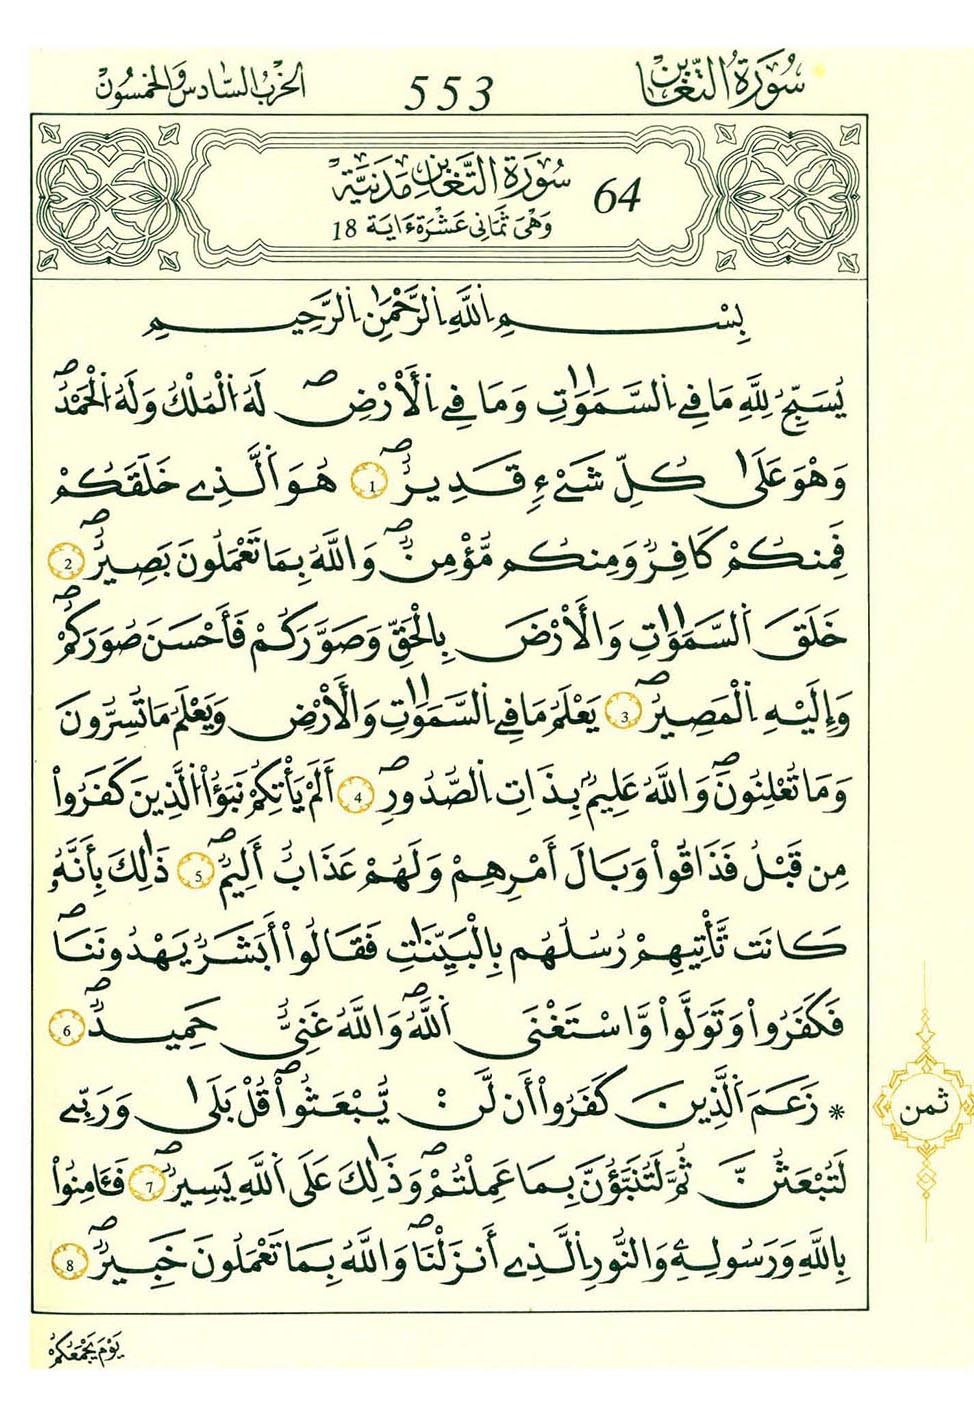 سُورَةُ التَّغَابُنِ 553 الحِزْبُ السَّادِسُ وَالْخَمْسُونَ
64 سُورَةُ التَّغَابُنِ مَدَنِيَّةٌ
وَهْيَ ثَمَانِي عَشْرَةَ ءَايَةً 18
بِسْمِ اِللَّهِ اِلرَّحْمَٰنِ اِلرَّحِيمِ
يُسَبِّحُ لِلَّهِ مَا فِے اِلسَّمَٰوَٰتِ وَمَا فِے اِلْأَرْضِۖ لَهُ اُلْمُلْكُ وَلَهُ اُلْحَمْدُۖ
وَهْوَ عَلَىٰ كُلِّ شَےْءٖ قَدِيرٌۖ 1 هُوَ اَلَّذِے خَلَقَكُمْ
فَمِنكُمْ كَافِرٌ وَمِنكُم مُّؤْمِنٌۖ وَاللَّهُ بِمَا تَعْمَلُونَ بَصِيرٌۖ 2
خَلَقَ اَلسَّمَٰوَٰتِ وَالْأَرْضَ بِالْحَقِّ وَصَوَّرَكُمْ فَأَحْسَنَ صُوَرَكُمْۖ
وَإِلَيْهِ اِلْمَصِيرُۖ 3 يَعْلَمُ مَا فِے اِلسَّمَٰوَٰتِ وَالْأَرْضِ وَيَعْلَمُ مَا تُسِرُّونَ
وَمَا تُعْلِنُونَۖ وَاللَّهُ عَلِيمٌ بِذَاتِ اِلصُّدُورِۖ 4 أَلَمْ يَأْتِكُمْ نَبَؤُاْ اُلَّذِينَ كَفَرُواْ
مِن قَبْلُ فَذَاقُواْ وَبَالَ أَمْرِهِمْ وَلَهُمْ عَذَابٌ أَلِيمٌۖ 5 ذَٰلِكَ بِأَنَّهُۥ
كَانَت تَّأْتِيهِمْ رُسُلُهُم بِالْبَيِّنَٰتِ فَقَالُواْ أَبَشَرٌ يَهْدُونَنَاۖ
فَكَفَرُواْ وَتَوَلَّواْ وَّاسْتَغْنَى اَللَّهُۖ وَاللَّهُ غَنِيٌّ حَمِيدٌۖ 6
* زَعَمَ اَلَّذِينَ كَفَرُواْ أَن لَّنْ يُّبْعَثُواْۖ قُلْ بَلَىٰ وَرَبِّے
لَتُبْعَثُنَّ ثُمَّ لَتُنَبَّؤُنَّ بِمَا عَمِلْتُمْۖ وَذَٰلِكَ عَلَى اَللَّهِ يَسِيرٌۖ 7 فَـَٔامِنُواْ
بِاللَّهِ وَرَسُولِهِۦ وَالنُّورِ اِلَّذِے أَنزَلْنَاۖ وَاللَّهُ بِمَا تَعْمَلُونَ خَبِيرٌۖ 8
ثمن
يَوْمَ يَجْمَعُكُمْ